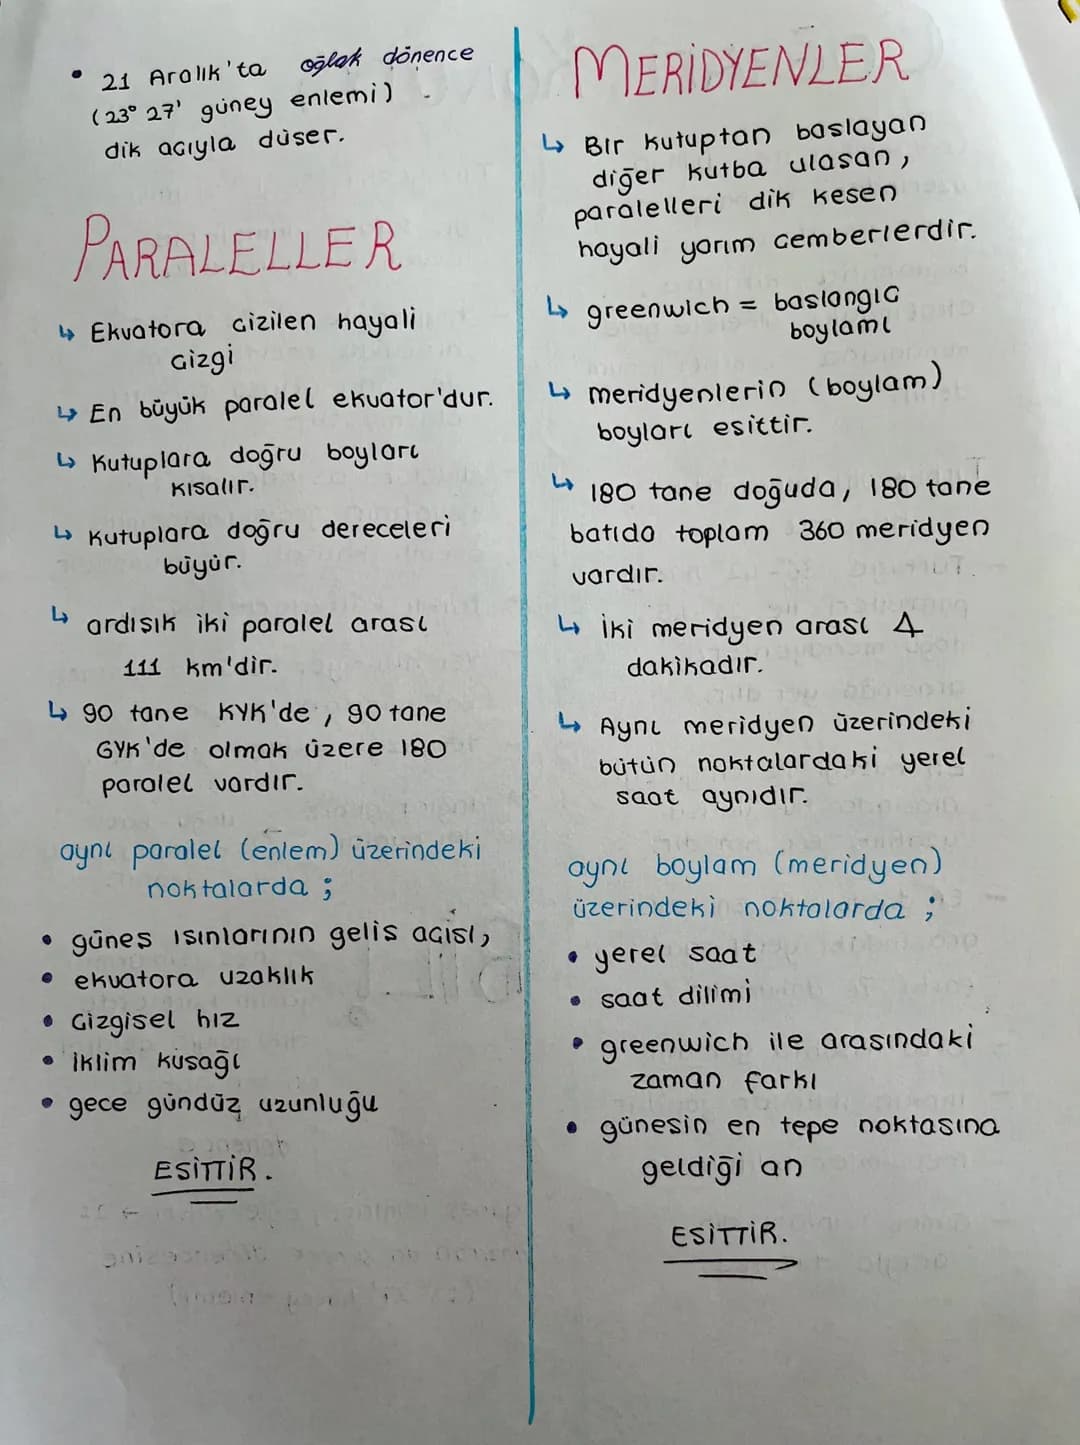 • 21 Aralık'ta oğlak dönence
(23° 27' güney enlemi)
dik acıyla düser.
PARALELLER
↳ Ekvatora cizilen hayali
cizgi
↳ En büyük paralel ekvator'dur.
↳ Kutuplara doğru boyları
kısalır.
↳ Kutuplara doğru dereceleri
büyür.
↳ ardısık iki paralel arası
111 km'dir.
↳ 90 tane KYK'de, 90 tane
GYK'de olmak üzere 180
paralel vardır.
aynı paralel (enlem) üzerindeki
noktalarda ;
• günes ısınlarının gelis acısı,
• ekvatora uzaklık
• cizgisel hız
• iklim kusağı
• gece gündüz uzunluğu
ESİTTİR.
MERİDYENLER
↳ Bir kutuptan baslayan
diğer kutba ulasan,
paralelleri dik kesen
hayali yarım cemberlerdir.
↳ greenwich = baslangıc
boylamı
↳ meridyenlerin (boylam)
boyları esittir.
↳ 180 tane doğuda, 180 tane
batıda toplam 360 meridyen
vardır.
↳ İki meridyen arası 4
dakikadır.
↳ Aynı meridyen üzerindeki
bütün noktalardaki yerel
saat aynıdır.
aynı boylam (meridyen)
üzerindeki noktalarda ;
• yerel saat
• saat dilimi
• greenwich ile arasındaki
zaman farkı
• günesin en tepe noktasına
geldiği an
ESİTTİR.